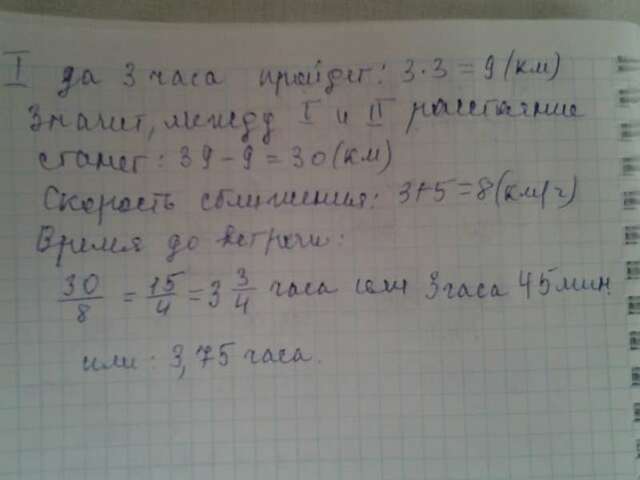 I за 3 часа пройдет: 3·3=9(км)
Значит, между I и II расстояние
станет: 39-9=30(км)
Скорость сближения: 3+5=8(км/ч)
Время до встречи:
30/8 = 15/4 = 3 3/4 часа или 3часа 45мин.
или: 3,75 часа.